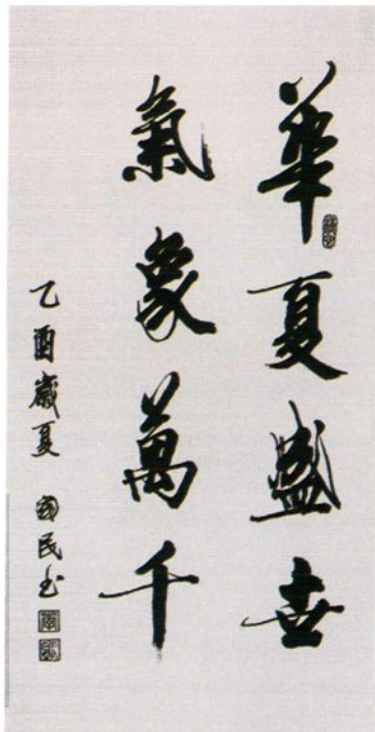 華夏盛世
氣象萬千
乙酉歲夏 國民书